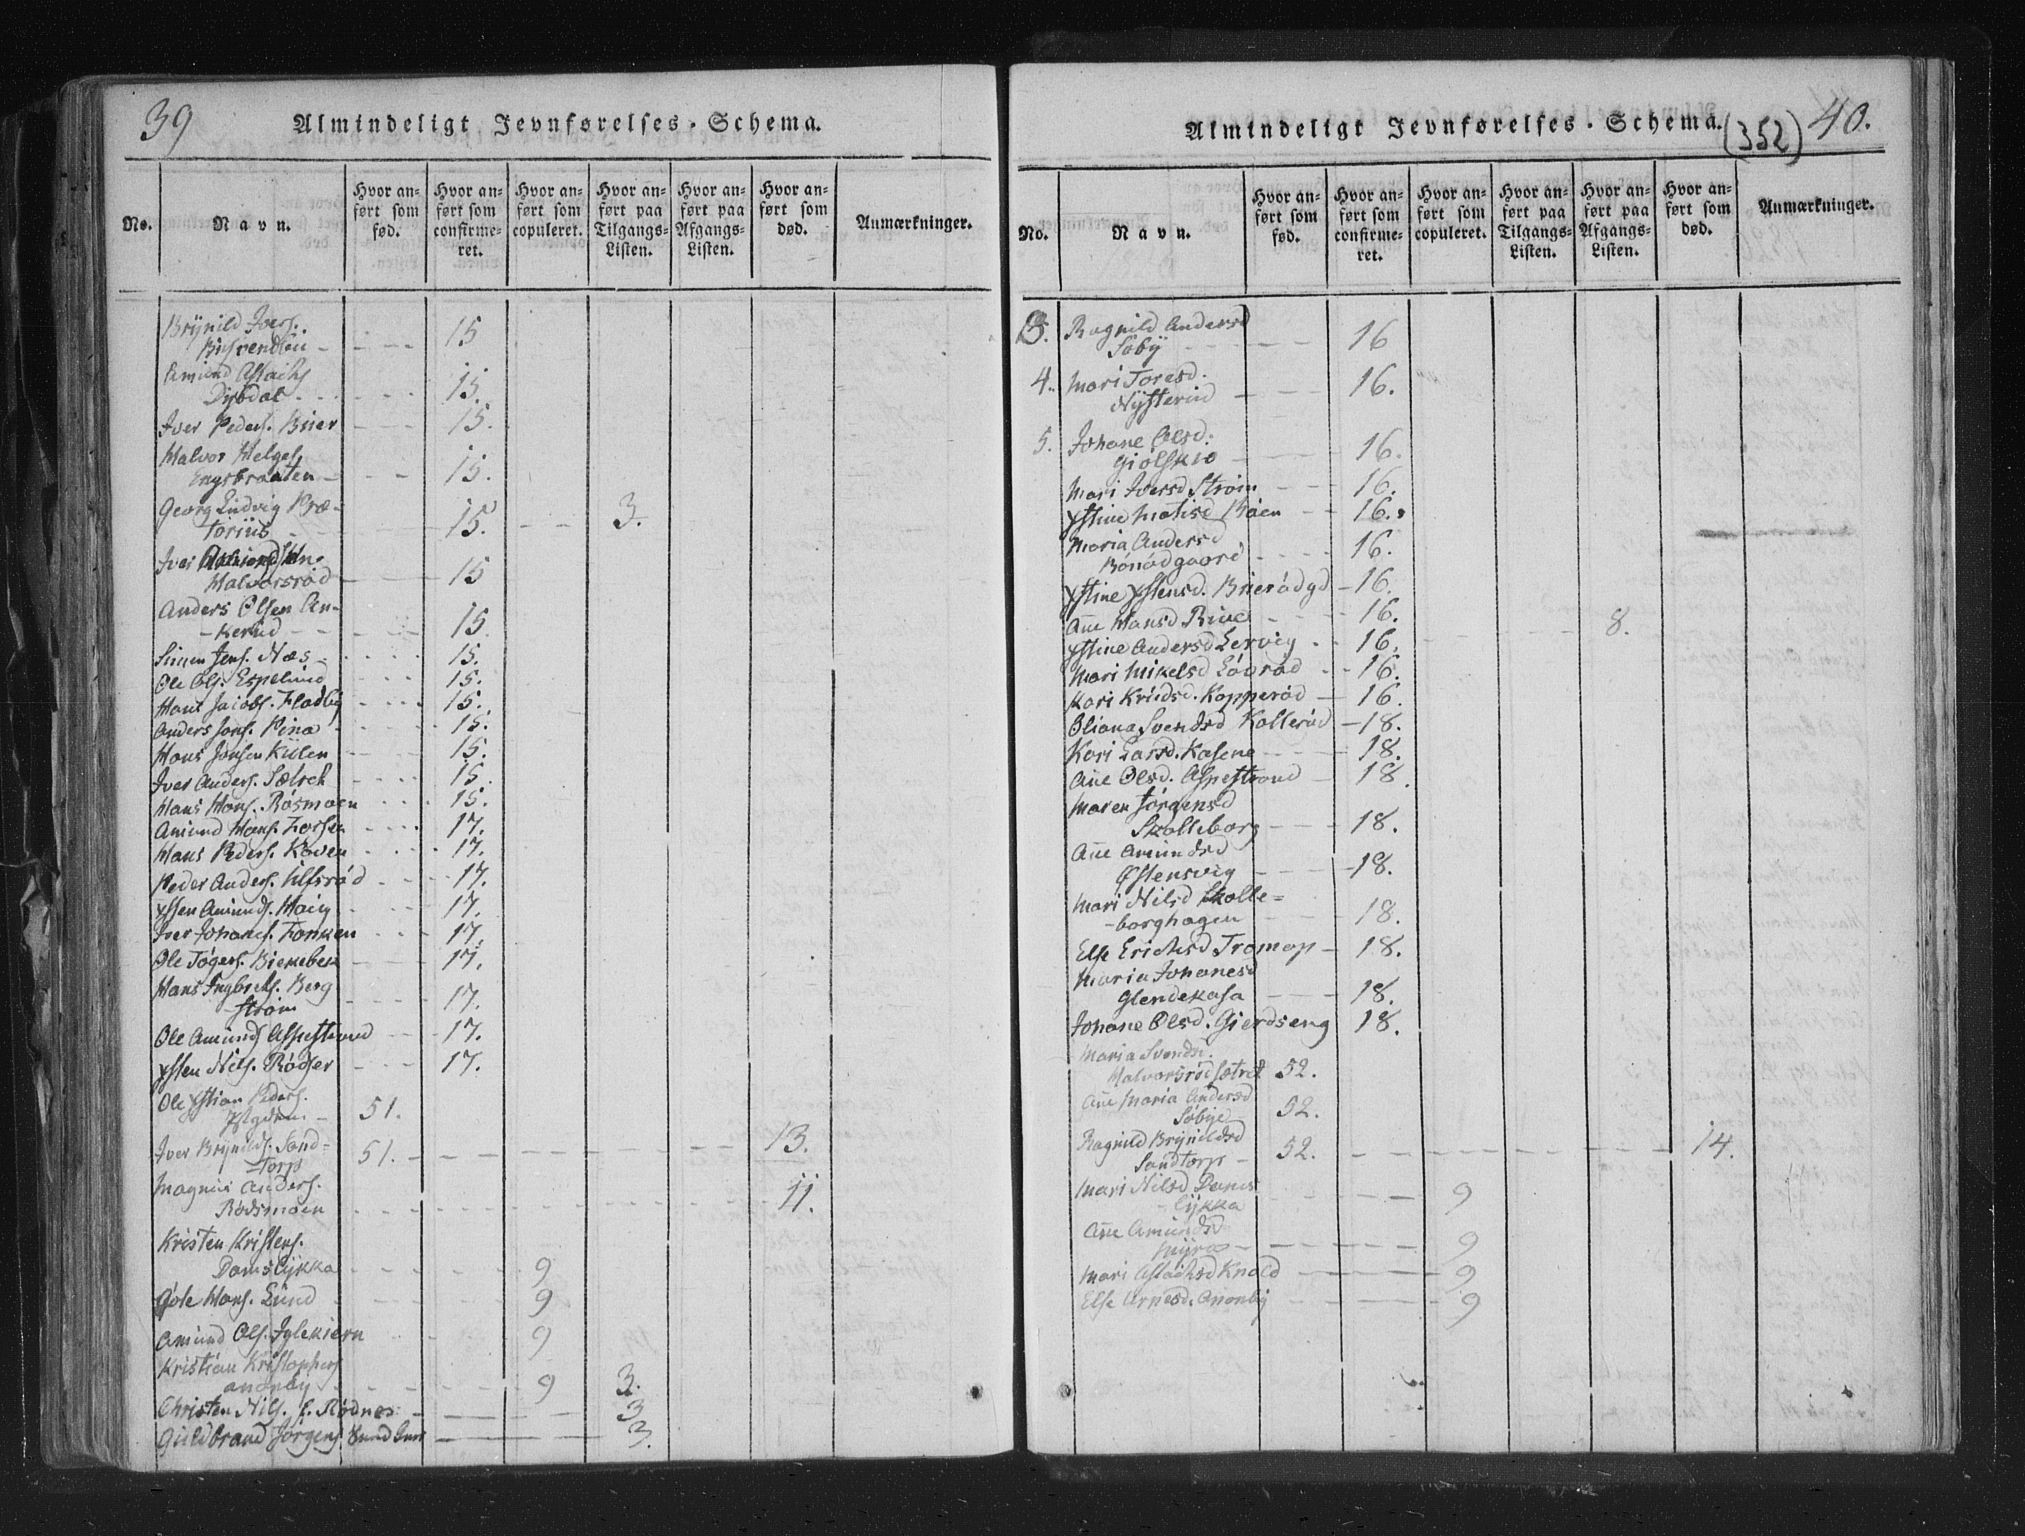 39
Almindeligt Jevnførelses-Schema.
No.
Navn.
Hvor an-
ført som
fød.
Hvor an-
ført som
confirme-
ret.
Hvor an-
ført som
copuleret.
Hvor an-
ført paa
Tilgangs-
Listen.
Hvor an-
ført paa
Afgangs-
Listen.
Hvor an-
ført som
død.
Anmærkninger.
Brynild Ivers.
15
Amund Aslachs
Dybdal 15.
Iver Peders. Buer 15.
Halvor Helges.
Engebraaten 15.
Georg Ludvig Præ-
torius 15. 3.
Iver
Halvorsrød 15
Anders Olsen An-
kerud 15
Simen Jens. Næs 15.
Ole Ols. Espelund 15.
Hans Jacobs. Fladby 15.
Anders Jons. Pina 15.
Hans Jonsen Kulen 15.
Iver Anders. Sætret 15.
Hans Hans. Røsmoen 15.
Amund Hans. Forsen 17.
Hans Peders. Kaven 17.
Peder Anders. Ulfsrød 17.
Xsten Amunds. Haig 17.
Iver Johans. Fonken 17.
Ole Togers. Birkebek 17.
Hans Ingbrets. Berg
strøm 17.
Ole Amunds Aspestrand 17.
Xsten Nils. Rødser 17.
Ole Xstian Peders.
51.
Iver Brynilds. Sand-
torp 51. 13.
Magnus Anders.
Rødsmoen 11.
Kristen Kristens.
Damslykka 9
Gole Hans. Lund 9
Amund Ols. Iglekiern 9
Kristian Kristophers
anonby 9 3.
Christen Nils. f. Rødnes 3
Guldbrand Jørgens. 3.
40.
Almindeligt Jevnførelses-Schema.
(352)
No.
Navn.
Hvor an-
ført som
fød.
Hvor an-
ført som
confirme-
ret.
Hvor an-
ført som
copuleret.
Hvor an-
ført paa
Tilgangs-
Listen.
Hvor an-
ført paa
Afgangs-
Listen.
Hvor an-
ført som
død.
Anmærkninger.
3. Ragnild Andersd
Søby 16
4. Mari Toresd.
Nysterud 16.
5. Johane Olsd.
Giølskiø 16.
Mari Iversd Strøm 16.
Xstine Matisd Moen 16.
Maria Andersd
Bønødgaard 16.
Xstine Xstensd. Buerødgd 16.
Ane Hansd Rive 16.
Xstine Andersd Lervig 16. 8.
Mari Mikelsd Løvrød 16.
Kari Knudsd. Kopperød 16.
Oliana Svendsd Kollerød 18.
Kari Larsd. Kasene 18.
Ane Olsd. Aspestrand 18.
Maren Jørgensd
Skolleborg 18.
Ane Amundsd
Østensvig 18.
Mari Nilsd Skolle-
borghagen 18.
Else Erichsd Tromop 18.
Maria Johanesd
Glendekasa 18.
Johane Olsd. Gierdseng 18.
Maria Svendsd.
Halvorsrødsætret 52.
Ane Maria Andersd
Søbye 52.
Ragnild Brynildsd
Sandtorp 52. 14.
Mari Nilsd Dams
lykka 9
Ane Amundsd
Myra 9
Mari Aslachsd Knold 9
Else Arnesd. Anonby 9